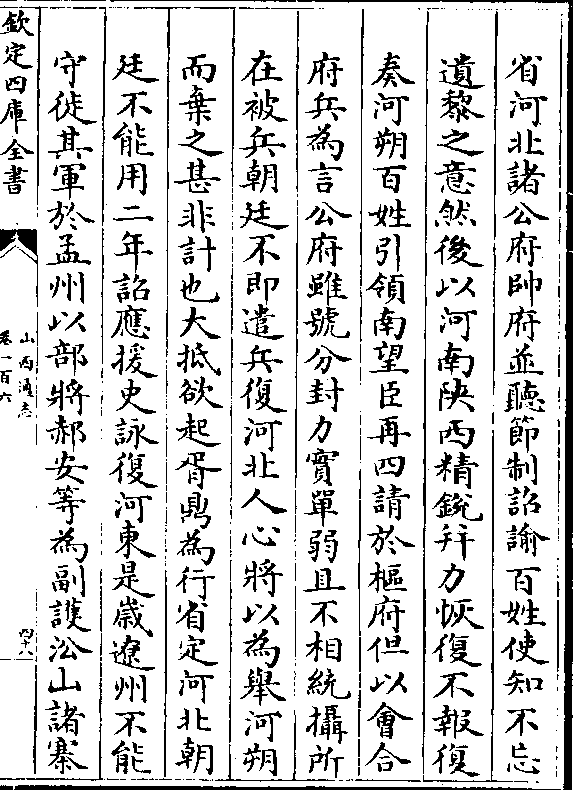 省河北諸公府帥府並聽節制詔諭百姓使知不忘
遺黎之意然後以河南陜西精銳并力恢復不報復
奏河朔百姓引領南望臣再四請於樞府但以會合
府兵為言公府雖號分封力實單弱且不相統攝所
在被兵朝廷不即遣兵復河北人心將以為舉河朔
而棄之甚非計也大抵欲起胥鼎為行省定河北朝
廷不能用二年詔應援史詠復河東是歲遼州不能
守徙其軍於孟州以部將郝安等為副護沁山諸寨
欽定四庫全書
山西通志
卷一百六
四十八